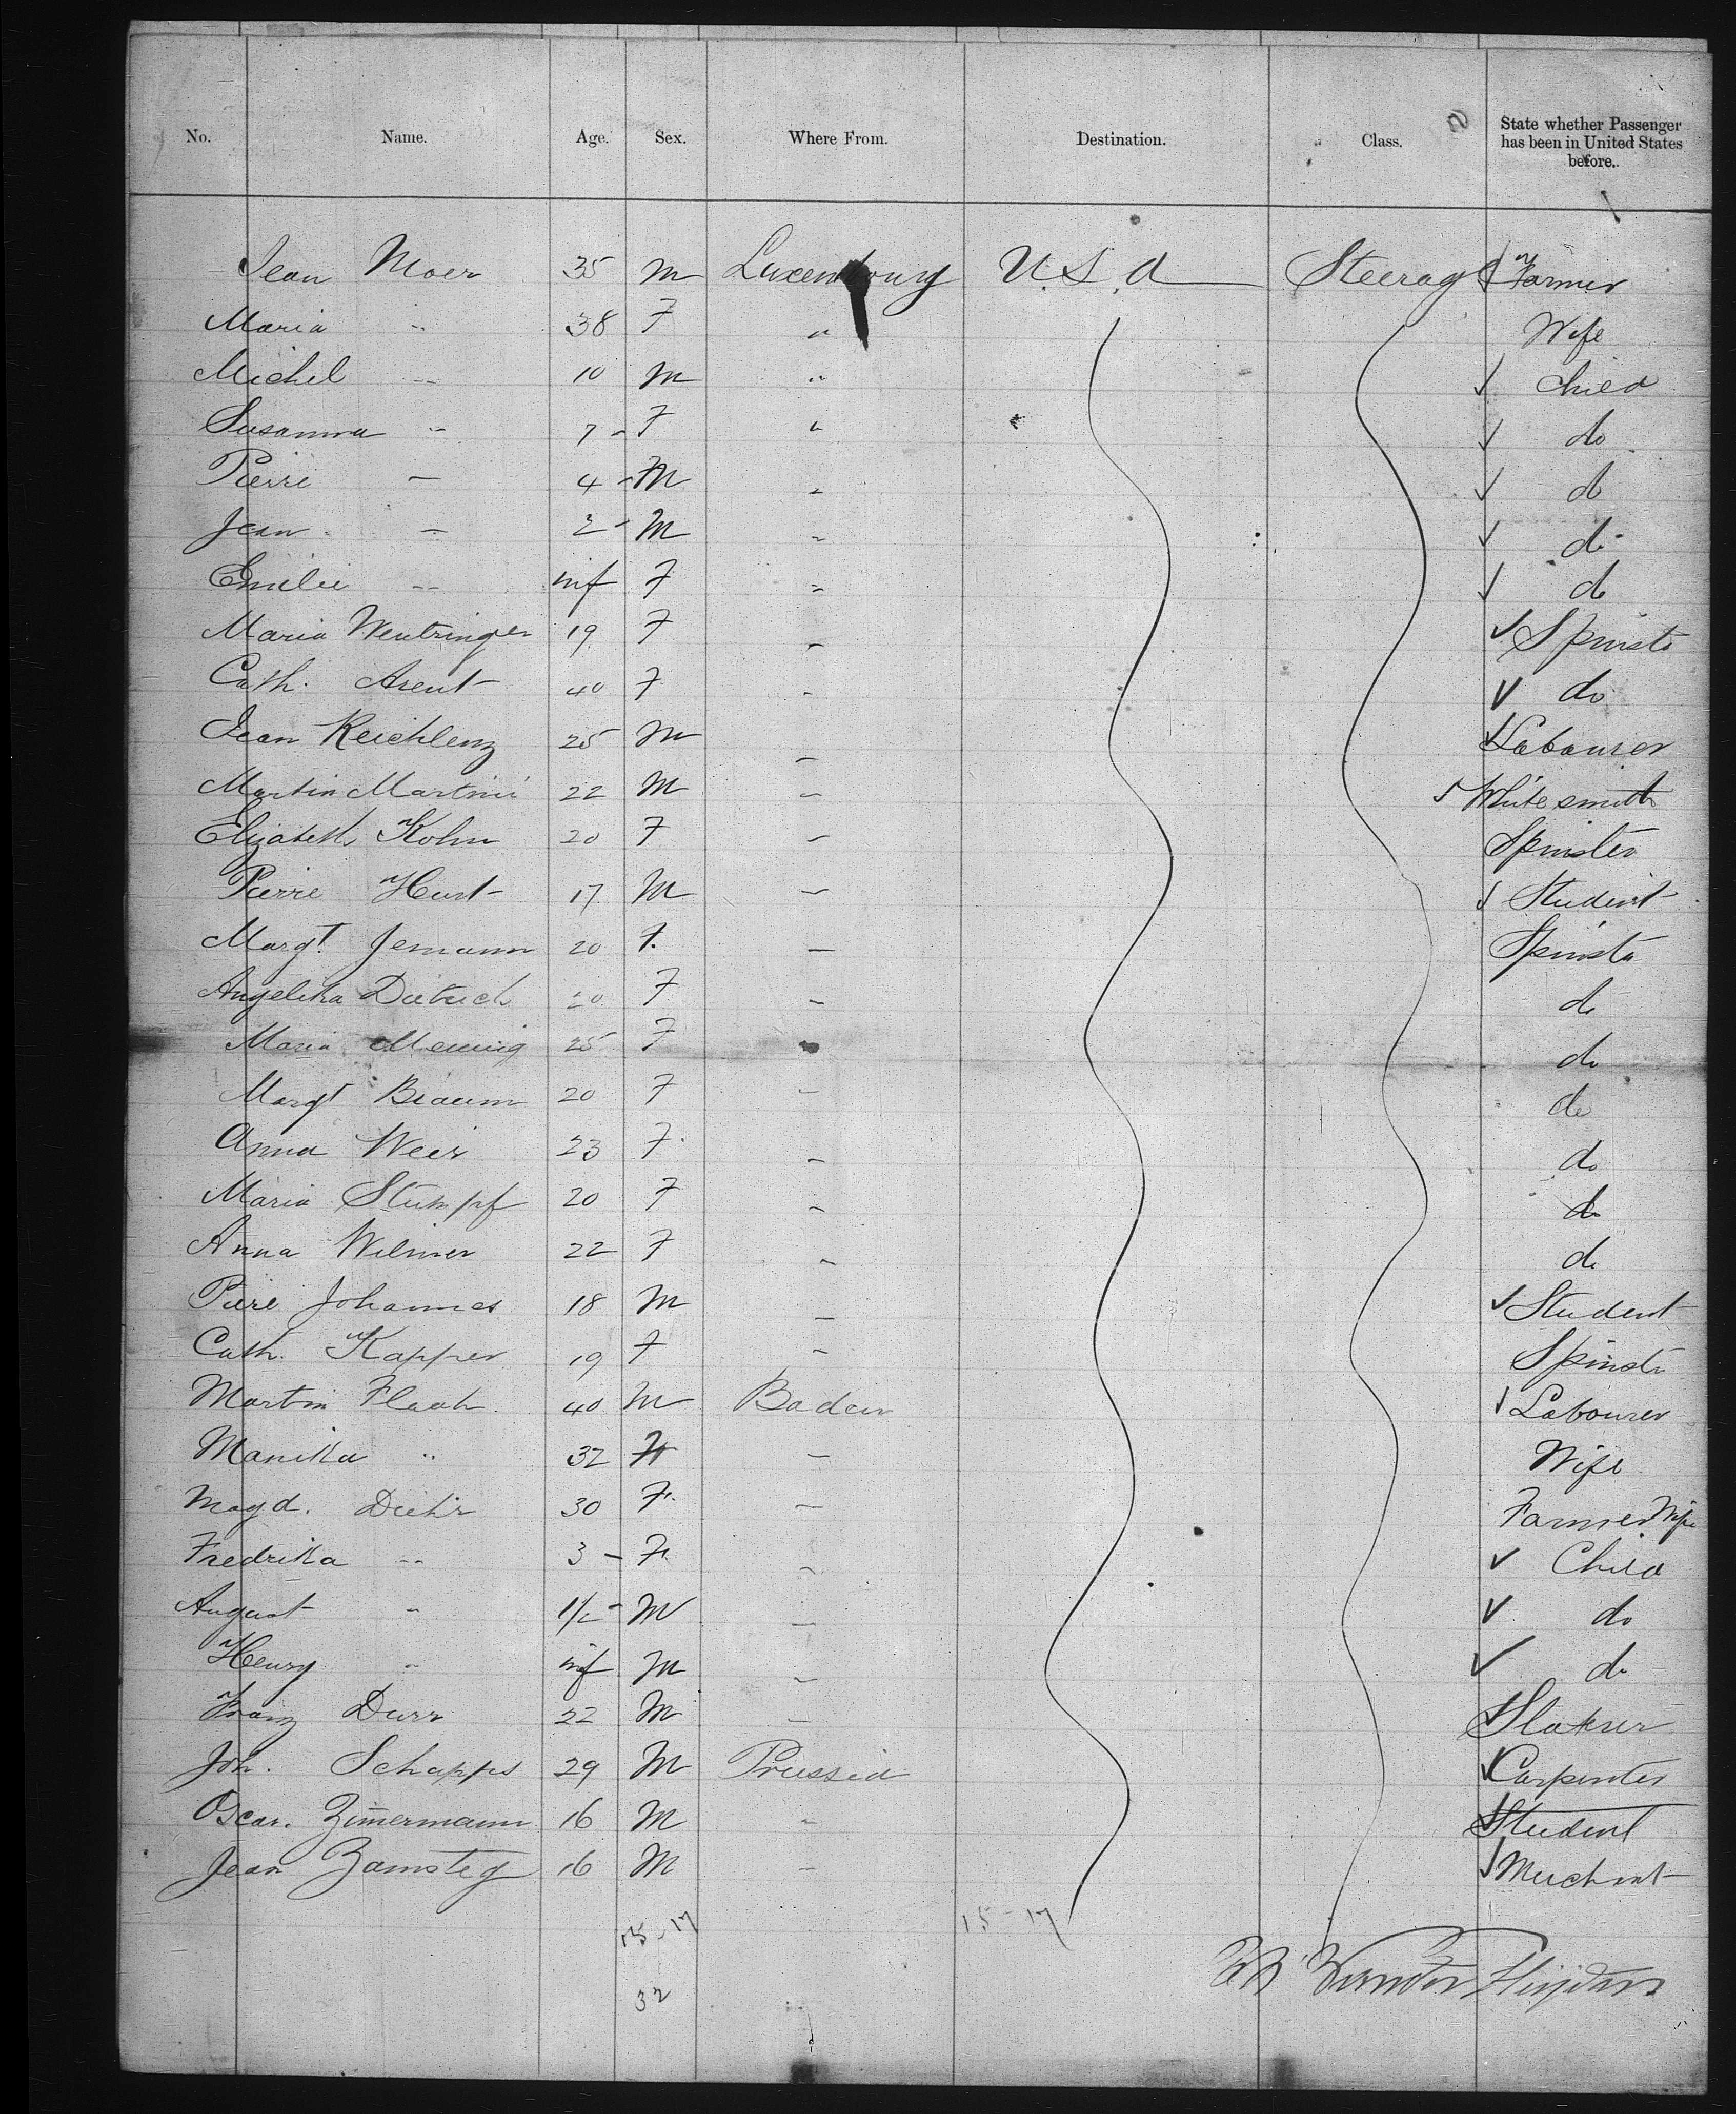 No. Name. Age. Sex. Where From. Destination. Class. State whether Passenger has been in United States before.
Jean Moer 35 m Luxembourg U.S.A Steerage Farmer
Maria " 38 F " Wife
Michel " 10 m " Child
Susanna " 7 - F " do
Pierre — 4 - M " do
Jean — 2 - M " do
Emilie " inf F " do
Maria Wentringer 19 F " Spinstr
Cath. Arent 40 F " do
Jean Reichlenz 25 m " Labourer
Martin Martini 22 M " White smith
Elizabeth Kohn 20 F " Spinster
Pierre Hurt 17 M " Student
Margt Jemann 20 F. " Spinstr
Angelika Dietrich 20 F " do
Maria 25 F do
Margt Braum 20 F " do
Anna Weir 23 F. " do
Maria Stumpf 20 F " do
Anna Wilmer 22 F " do
Piere Johannes 18 M " Student
Cath. Kapper 19 F " Spinstr
Martin Flach 40 M Baden Labourer
Manika " 32 F " Wife
Magd. Diehr 30 F. " Farmer Wife
Fredrika " 3 - F. " Child
August " 1/2 - M " do
Henry " inf M " do
Franz Durr 22 M "
Joh. Schapps 29 M Prussia Carpenter
Oscar. Zimermann 16 M " Student
Jean Zamsteg 16 M " Merchant
15-17 15-17
32